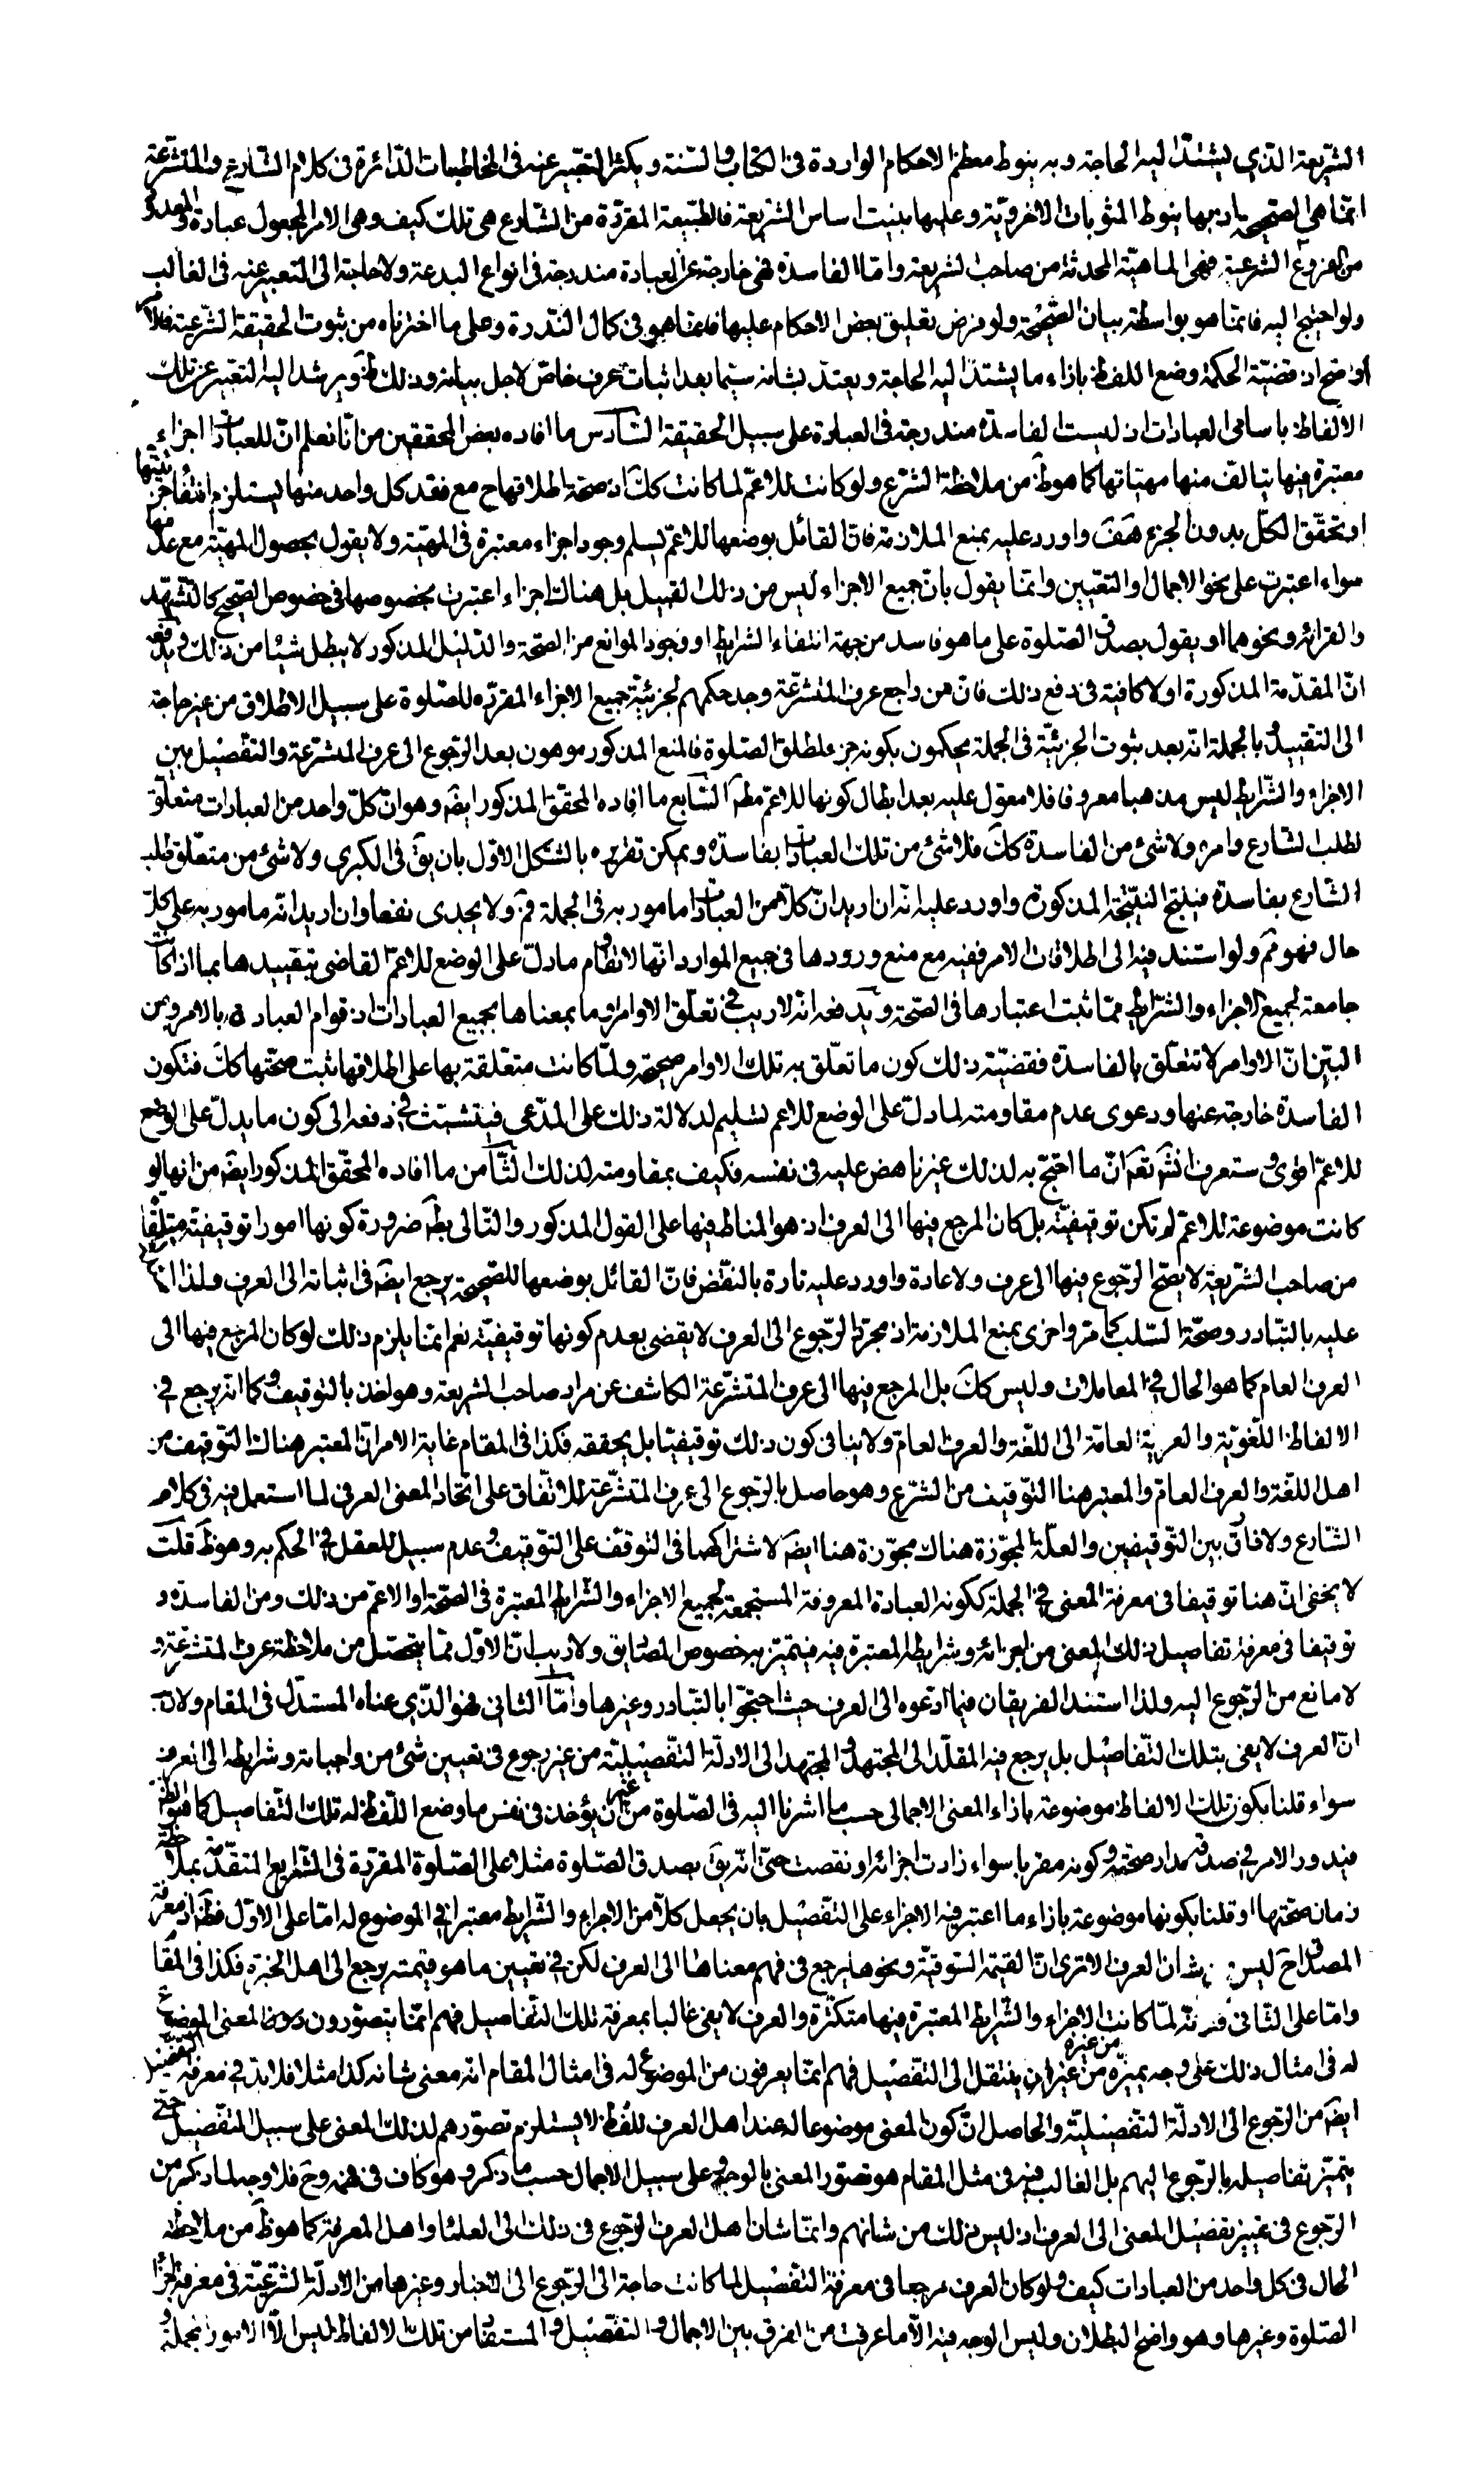 الشريعة الذي يشتد اليه الحاجة وبه ينوط معظم الاحكام الواردة فى الكتاب والسّنة ويكثر التعبير عنه فى المخاطبات الدّائرة فى كلام الشّارع والمتشرّعة
انّما هى الصّحيحة اذ بها ينوط المثوبات الاخرويّة وعليها بنيت اساس الشريعة فالطّبيعة المقرّرة من الشّارع هى تلك كيف وهى الامر المجعول عبادة والمعدود
من الفروع الشرعيّة فهى الماهيّة المحدثة من صاحب الشريعة وامّا الفاسدة فهى خارجة عن العبادة مندرجة فى انواع البدعة ولا حاجة الى التعبير عنه فى الغالب
ولو احتيج اليه فانّما هو بواسطة بيان الصّحيحة ولو فرض تعليق بعض الاحكام عليها فانّما هو فى كمال النّدرة وعلى ما اخترناه من ثبوت الحقيقة الشّرعية فالامر
اوضح اذ قضيّة الحكمة وضع اللفظ بازاء ما يشتدّ اليه الحاجة ويعتدّ بشانه سيّما بعد اثبات عرف خاصّ لاجل بيانه وذلك ظَ ويرشد اليه التعبير عن تلك
الالفاظ باسامى العبادات اذ ليست الفاسدة مندرجة فى العبادة على سبيل الحقيقة السّادس ما افاده بعض المحققين من انّا نعلم انّ للعبادات اجزاء
معتبرة فيها يتالّف منها مهيّاتها كما هو ظَ من ملاحظة الشرع ولو كانت للاعمّ لما كانت ككَ اذ صحّة اطلاقها ح مع فقد كل واحد منها يستلزم انتفاء جزئيّتها
او تحقّق الكلّ بدون الجزء هَفَ واورد عليه بمنع الملازمة فانّ القائل بوضعها للاعمّ يسلم وجود اجزاء معتبرة فى المهيّة ولا يقول بحصول المهيّة مع عدمها
سواء اعتبرت على نحو الاجمال او التعيين وانّما يقول بانّ جميع الاجزاء ليس من ذلك القبيل بل هناك اجزاء اعتبرت بخصوصها فى خصوص الصّحيح كالتشهّد
والقرائة ونحوهما او يقول بصدق الصّلوة على ما هو فاسد من جهة انتفاء الشرايط او وجود الموانع من الصّحة والدّليل المذكور لا يبطل شيئا من ذلك ويدفعه
انّ المقدّمة المذكورة اولا كافية فى دفع ذلك فانّ من راجع عرف المتشرّعة وجد حكمهم بجزئيّة جميع الاجزاء المقرّره للصّلوة على سبيل الاطلاق من غير حاجة
الى التقييد وبالجملة انّه بعد ثبوت الجزئيّة فى الجملة يحكمون بكونه جزء لمطلق الصّلوة فالمنع المذكور موهون بعد الرّجوع الى عرف المتشرعة والتفصيل بين
الاجزاء والشّرايط ليس مذهبا معروفا فلا معوّل عليه بعد ابطال كونها للاعمّ مطَ السّابع ما افاده المحقّق المذكور ايضَ وهو انّ كلّ واحد من العبادات متعلّق
لطلب الشارع وامره ولا شئ من الفاسدة ككَ فلا شئ من تلك العبادات بفاسدة ويمكن تقريره بالشكل الاوّل بان يقَ فى الكبرى ولا شئ من متعلّق طلب
الشّارع بفاسدة فينتج النتيجة المذكورة واورد عليه انّه ان اريد انّ كلاّ من العبادات مامور به فى الجملة فمَ ولا يجدى نفعا وان اريد انّه مامور به على كلّ
حال فهو مَم ولو استند فيه الى اطلاقات الامر ففيه مع منع ورودها فى جميع الموارد انّها لا تقاوم ما دلّ على الوضع للاعمّ القاضى بتقييدها بما اذا كانت
جامعة لجميع الاجزاء والشّرايط ممّا ثبت اعتبارها فى الصّحة ويدفعه انّه لا ريب فى تعلّق الاوامر وما بمعناها بجميع العبادات اذ قوام العبادة بالامر ومن
البيّن انّ الاوامر لا تتعلّق بالفاسدة فقضيّة ذلك كون ما تعلّق به تلك الاوامر صحيحة ولمّا كانت متعلّقة بها على اطلاقها ثبت صحّتها ككَ فتكون
الفاسدة خارجة عنها ودعوى عدم مقاومته لما دلّ على الوضع للاعم تسليم لدلالة ذلك على المدّعى فيتشبّث فى دفعه الى كون ما يدلّ على الوضع
للاعمّ اقوى وستعرف انشَ تعَ انّ ما احتجّ به لذلك غير ناهض عليه فى نفسه فكيف بمقاومته لذلك الثّامن ما افاده المحقّق المذكور ايضَ من انها لو
كانت موضوعة للاعمّ لم تكن توقيفيّة بل كان المرجع فيها الى العرف اذ هو المناط فيها على القول المذكور والتّالى بطَ ضرورة كونها امورا توقيفيّة متلقّاة
من صاحب الشريعة لا يصحّ الرّجوع فيها الى عرف ولا عادة واورد عليه تارة بالنّقض فانّ القائل بوضعها للصّحيحة يرجع ايضَ فى اثباته الى العرف ولذا
عليه بالتّبادر وصحّة السّلب كما مرّ واخرى بمنع الملازمة اذ مجرّد الرّجوع الى العرف لا يقضى بعدم كونها توقيفيّة نعم انّما يلزم ذلك لو كان المرجع فيها الى
العرف العام كما هو الحال فى المعاملات وليس ككَ بل المرجع فيها الى عرف المتشرّعة الكاشف عن مراد صاحب الشريعة وهو اخذ بالتوقيف وكما انّه يرجع فى
الالفاظ اللّغويّة والعربيّة العامّة الى اللّغة والعرف العامّ ولا ينافى كون ذلك توقيفيّا بل يحققه فكذا فى المقام غاية الامر انّ المعتبر هناك التّوقيف من
اهل اللّغة والعرف العامّ والمعتبر هنا التّوقيف من الشرع وهو حاصل بالرّجوع الى عرف المتشرّعة للاتّفاق على اتّحاد المعنى العرفى لما استعمل فيه فى كلام
الشّارع ولا فارق بين التّوقيفين والعلّة المجوّزة هناك مجوّزة هنا ايضَ لاشتراكهما فى التوقّف على التّوقيف وعدم سبيل للعقل فى الحكم به وهو ظَ قلت
لا يخفى انّ هنا توقيفا فى معرفة المعنى فى الجملة ككونه العبادة المعروفة المستجمعة لجميع الاجزاء والشّرايط المعتبرة فى الصّحة او الاعمّ من ذلك ومن الفاسدة و
توقيفا فى معرفة تفاصيل ذلك المعنى من اجزائه وشرايطه المعتبرة فيه فيتميّز به خصوص المصاديق ولا ريب انّ الاوّل ممّا يتحصّل من ملاحظة عرف المتشرّعة و
لا مانع من الرّجوع اليه ولذا استند الفريقان فيما ادّعوه الى العرف حيث احتجّوا بالتّبادر وغيرها وامّا الثانى فهو الذّى عناه المستدّل فى المقام ولا
انّ العرف لا يفى بتلك التّفاصيل بل يرجع فيه المقلّد الى المجتهد والمجتهد الى الادلّة التّفصيليّة من غير رجوع فى تعيين شئ من واجباته وشرايطه الى العرف
سواء قلنا بكون تلك الالفاظ موضوعة بازاء المعنى الاجمالى حسب ما اشرنا اليه فى الصّلوة من غير ان يؤخذ فى نفس ما وضع اللّفظ له تلك التّفاصيل كما هو الظَ
فيدور الامر فى صدقه مدار صحّته وكونه مقربا سواء زادت اجزائه او نقصت حتّى انّه يقَ بصدق الصّلوة مثلا على الصّلوة المقرّرة فى الشّرايع المتقدّمة بملاحظة
زمان صحّتها او قلنا بكونها موضوعة بازاء ما اعتبر فيه الاجزاء على التّفصيل بان يجعل كلاّ من الاجزاء والشّرايط معتبرا فى الموضوع له امّا على الاوّل فظَ اذ معرفة
المصداق ح ليس شان العرف الا ترى انّ القيمة السّوقيّة ونحوها يرجع فى فهم معناها الى العرف لكن فى تعيين ما هو قيمته يرجع الى اهل الخبرة فكذا فى المقام
وامّا على الثّانى فلانّه لمّا كانت الاجزاء والشّرايط المعتبرة فيها متكثّرة والعرف لا يفى غالبا بمعرفة تلك التّفاصيل فهم انّما يتصوّرون المعنى الموضوع
له فى امثال ذلك على وجه يميزه من غيره من غير ان ينتقل الى التّفصيل فهم انّما يعرفون من الموضوع له فى امثال المقام انّه معنى شانه كذا مثلا فلا بدّ فى معرفة التفصيل
ايضَ من الرّجوع الى الادلّة التّفصيليّة والحاصل انّ كون المعنى موضوعا له عند اهل العرف للّفظ لا يستلزم تصوّرهم لذلك المعنى على سبيل التّفصيل حتّى
يتميّز تفاصيله بالرّجوع اليهم بل الغالب فيه فى مثل المقام هو تصوّر المعنى بالوجه وعلى سبيل الاجمال حسب ما ذكر وهو كاف فى فهمه وح فلا وجه لما ذكر من
الرّجوع فى تمييز تفصيل المعنى الى العرف اذ ليس ذلك من شانهم وانّما شان اهل العرف الرّجوع فى ذلك الى العلماء واهل المعرفة كما هو ظَ من ملاحظة
الحال فى كل واحد من العبادات كيف ولو كان العرف مرجعا فى معرفة التفصيل لما كانت حاجة الى الرّجوع الى الاخبار وغيرها من الادلّة الشّرعيّة فى معرفة اجزاء
الصّلوة وغيرها وهو واضح البطلان وليس الوجه فيه الاّ ما عرفت من الفرق بين الاجمال والتّفصيل والمستفاد من تلك الالفاظ ليس الاّ الامور المجملة